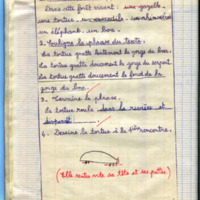 Dans cette forêt vivent : une gazelle,
une tortue, un crocodile, un rhinocéros
un éléphant, un boa.
2. Souligne la phrase du texte.
La tortue gratte lentement la gorge du boa.
La tortue gratte doucement la gorge du serpent.
La tortue gratte doucement le fond de la
gorge du boa.
3. Termine la phrase.
La tortue roula dans la rivière et
disparut
4. Dessine la tortue à la 1ère rencontre.
(Elle rentre vite sa tête et ses pattes)